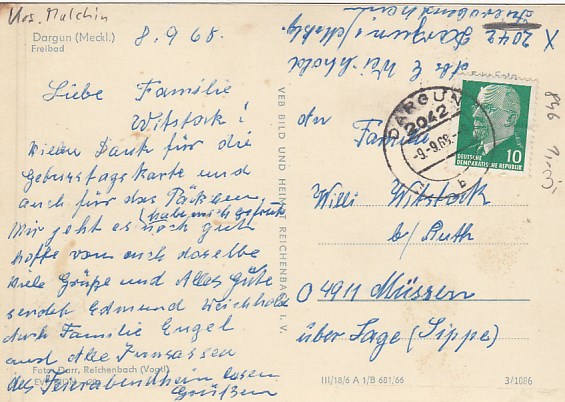 Krs. Malchin
Dargun (Meckl.)
Freibad
8.9.68.
Liebe Familie
Witstock!
Vielen Dank für die
Geburtstagskarte und
auch für das Päckchen,
habe mich gefreut
Mir geht es noch gut
hoffe von euch dasselbe
Viele Grüße und Alles Gute
sendet Edmund Weichhold
durch Familie Engel
und Alle Insassen
des Feierabendheim lasen
Grüßen
Foto: Darr, Reichenbach (Vogtl)
VEB BILD UND HEIMAT REICHENBACH I. V.
Abs. E Weichhold
X 2042 Dargun i/Meckbg
Feierabendheim
DARGUN
2042
-9.-9.68.-
b
DEUTSCHE
DEMOKRATISCHE REPUBLIK
10
An
Familie
Willi Witstock
b/ Huth
O 4911 Müssen
über Lage (Lippe)
III/18/6 A 1/B 681/66
3/1086